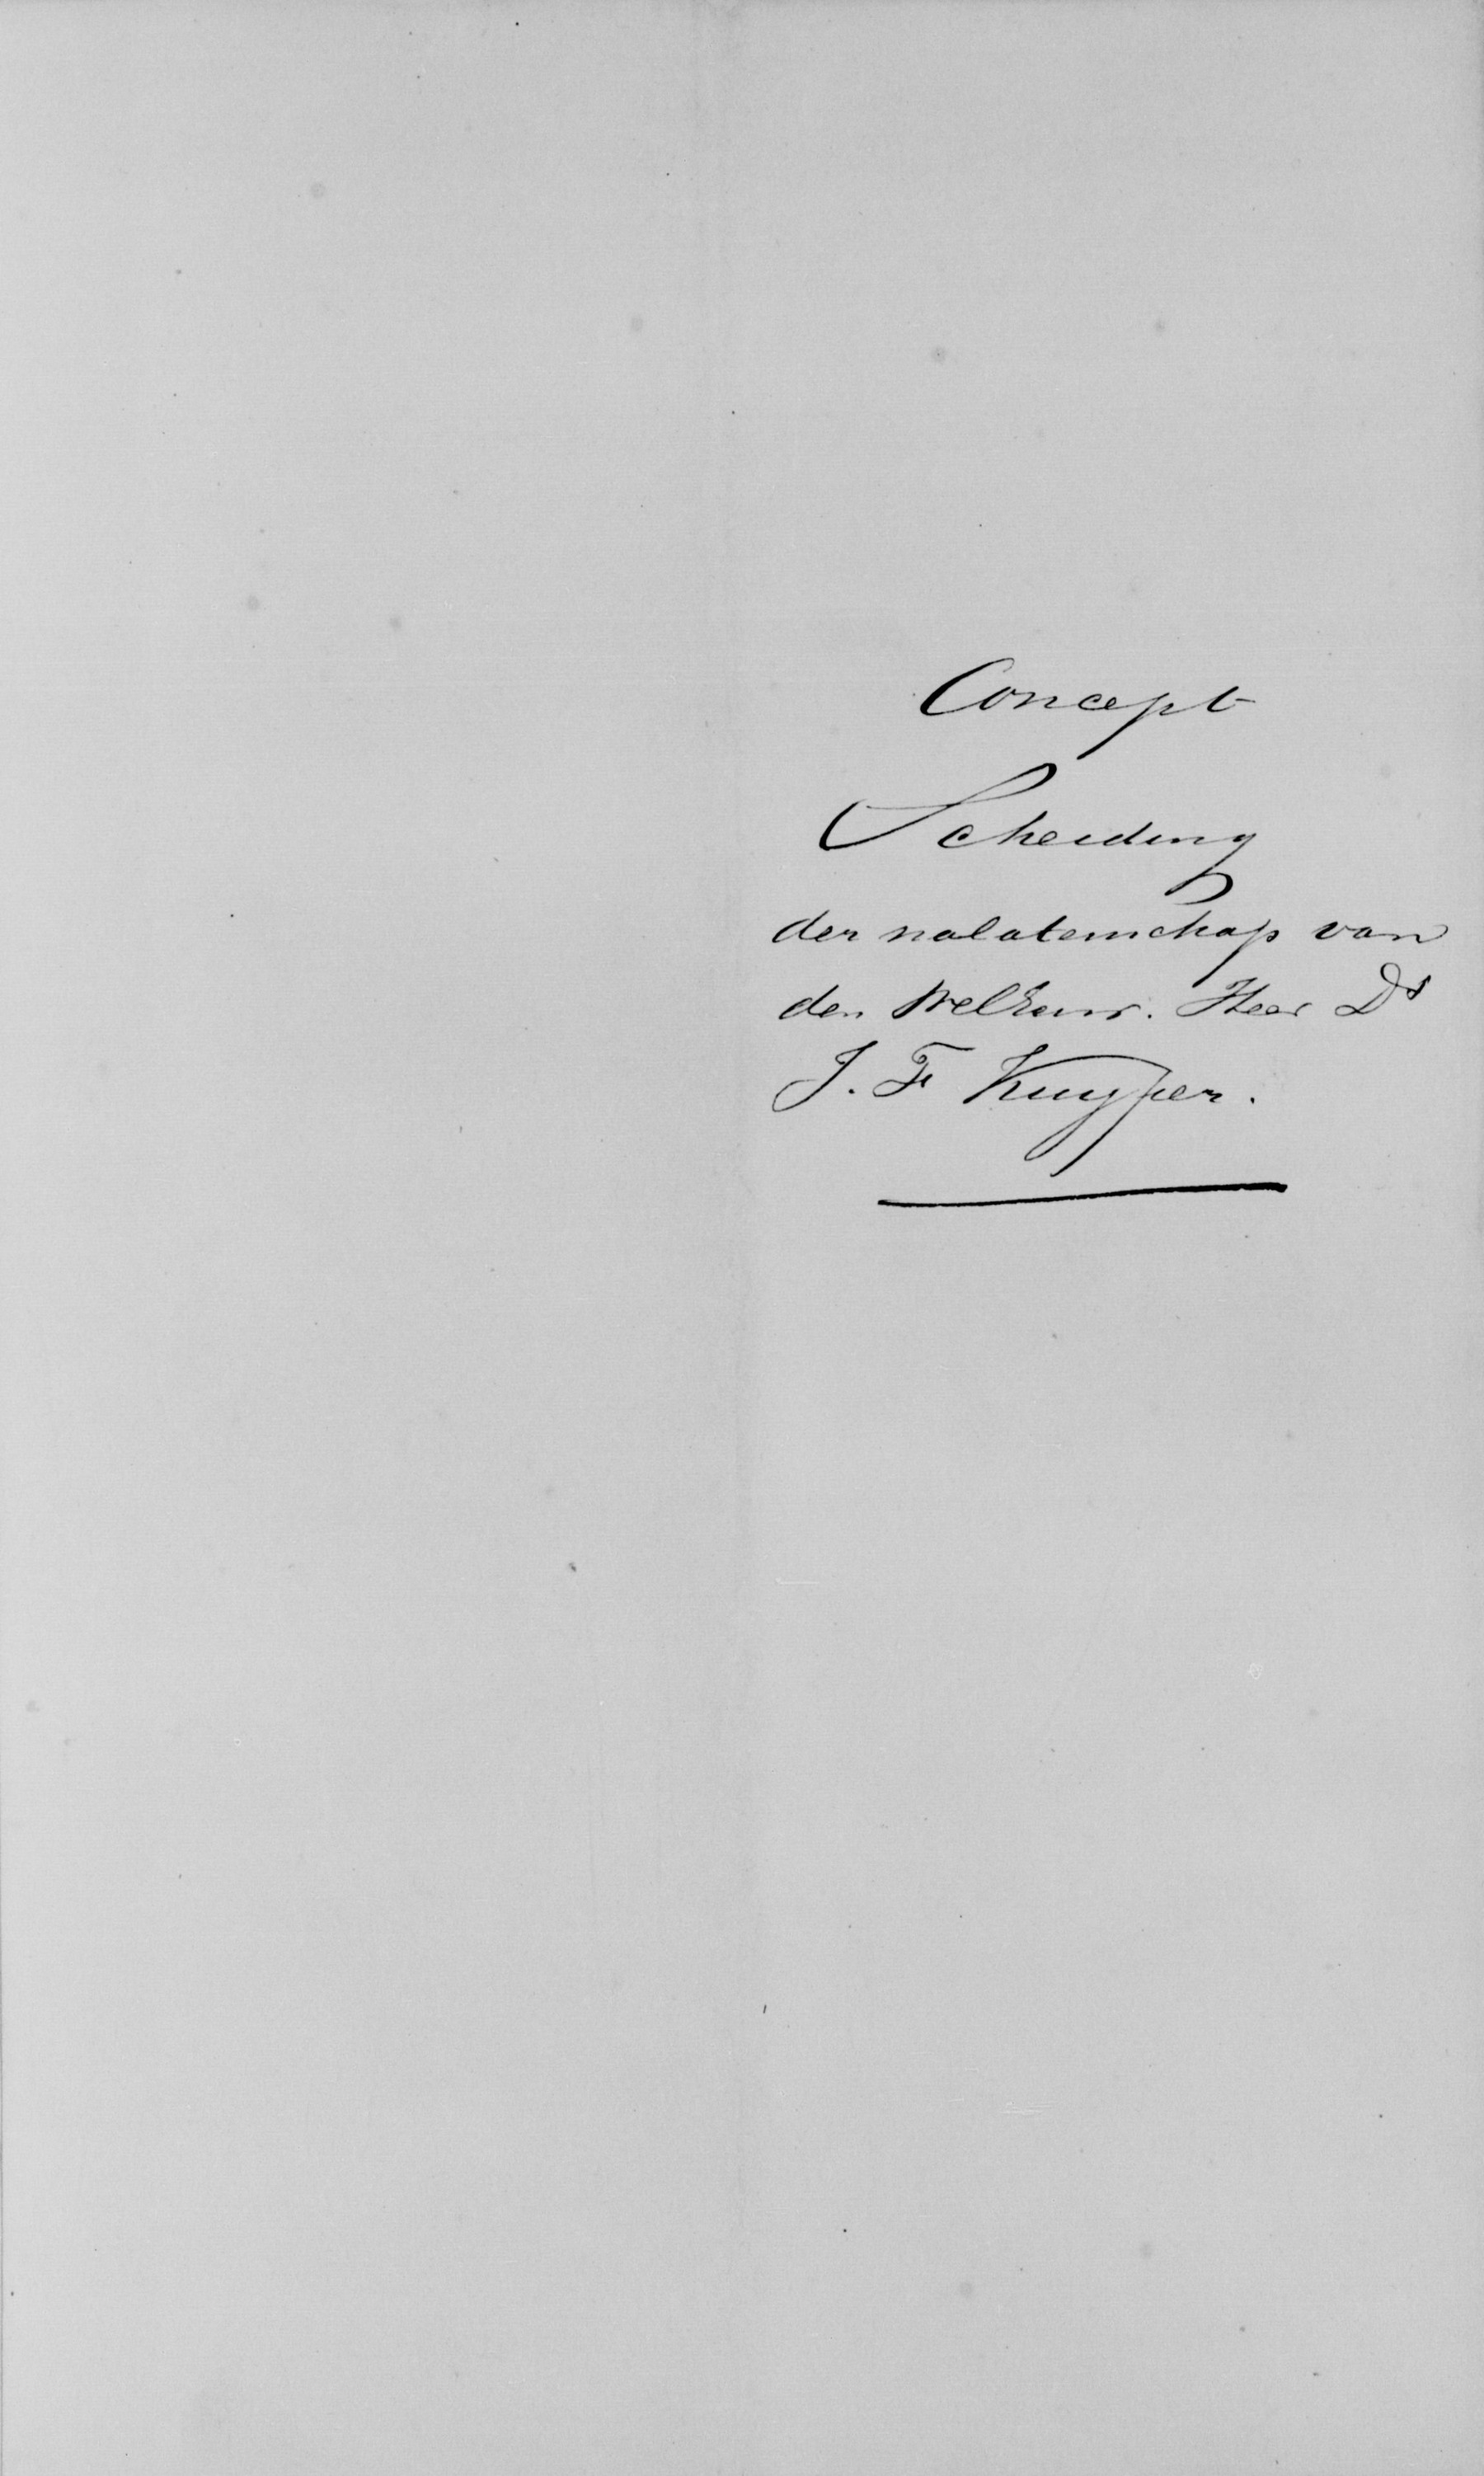 Concept
Scheiding
der nalatenschap van
den WelEerw. Heer Ds
J. F Kuyper.